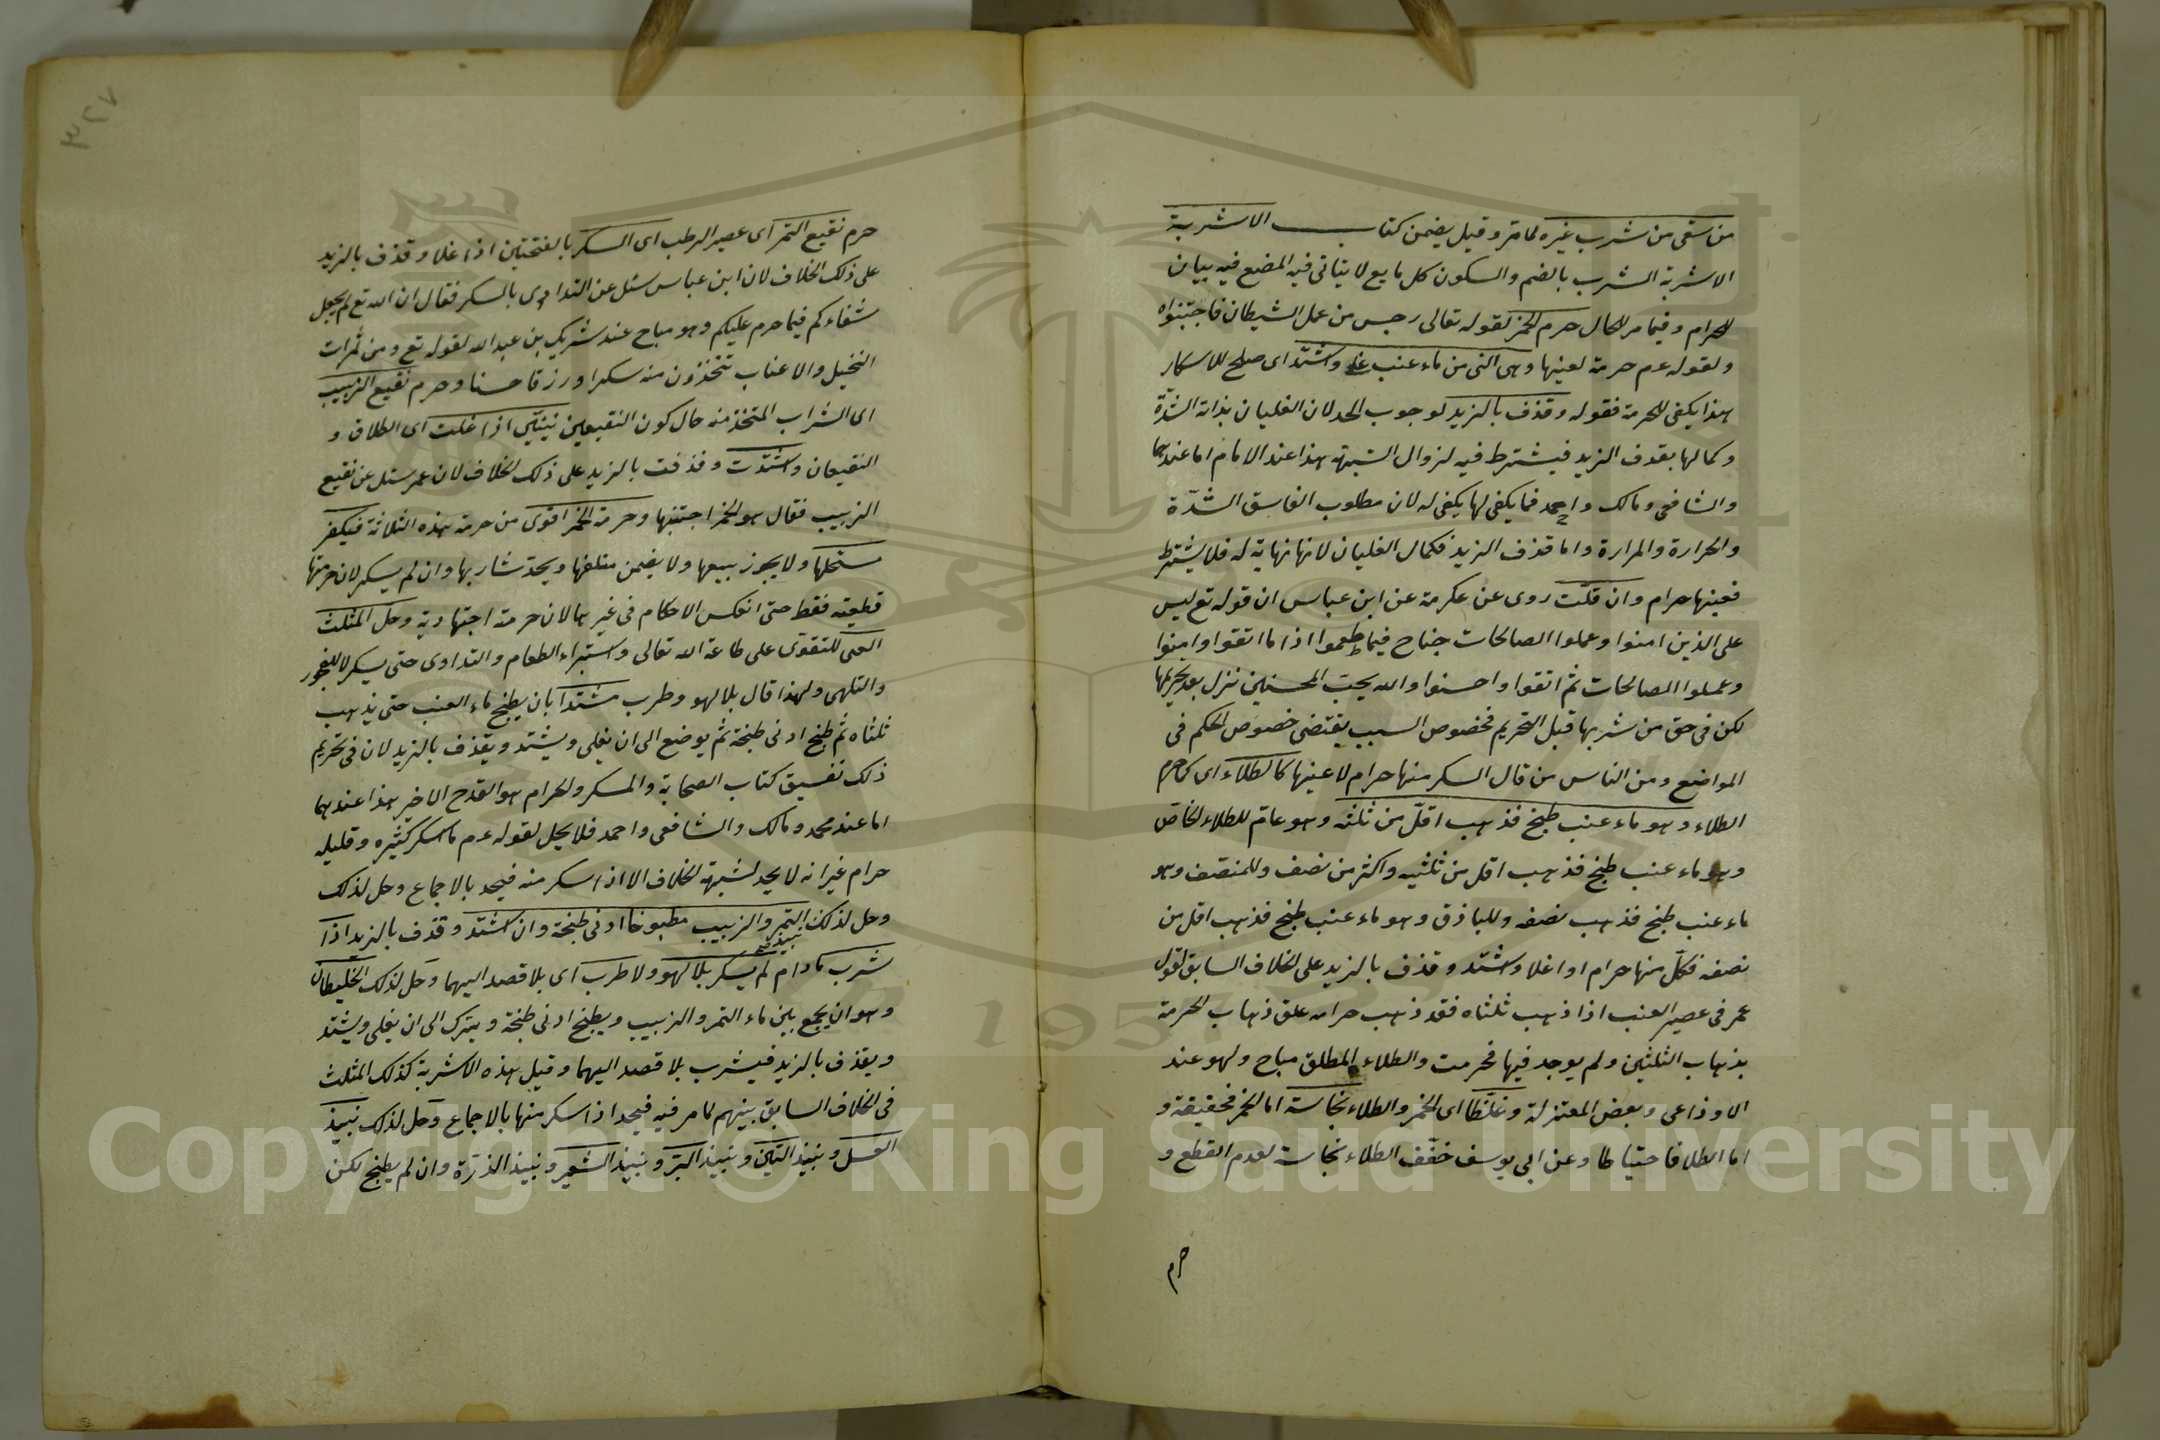 من سقى من شرب غيره لما مر وقيل يضمن كتاب الاشربة
الاشربة الشرب بالضم والسكون كل مايع لا يتاتى فيه المضغ فيه بيان
الحرام وفيما مر الحال حرم الخمر لقوله تعالى رجس من عمل الشيطان فاجتنبواه
ولقوله عم حرمة لعينها وهى التى من ماء عنب غلا واشتد اى صلح للاسكار
هذا يكفى للحرمة فقوله وقذف بالزبد لوجوب الحد لان الغليان بذاته الشدّة
وكمالها بقذف الزبد فيشترط فيه لزوال الشبهة هذا عند الامام اما عندهما
والشافعى ومالك واحمد فما يكفى لها يكفى له لان مطلوب الفاسق الشدّة
والحرارة والمرارة واما قذف الزبد فكمال الغليان لانها نهاية له فلا يشترط
فعينها حرام وان قلت روى عن عكرمة عن ابن عباس ان قوله تع ليس
على الذين امنوا وعملوا الصالحات جناح فيما طعموا اذا ما اتقوا وامنوا
وعملوا الصالحات ثم اتقوا واحسنوا والله يحب المحسنين نزل بعد تحريمها
لكن فى حق من شربها قبل التحريم فخصوص السبب يقتضى خصوص الحكم فى
المواضع ومن الناس من قال السكر منها حرام لا عينها كالطلاء اى كما حرم
الطلاء وهو ماء عنب طبخ فذهب اقل من ثلثه وهو عام للطلاء الخاص
وهو ماء عنب طبخ فذهب اقل من ثلثيه واكثر من نصف وللمنصف وهو
ماء عنب طبخ فذهب نصفه وللباذق وهو ماء عنب طبخ فذهب اقل من
نصفه فكل منها حرام اذا غلا واشتد وقذف بالزبد على الخلاف السابق لقول
عمر فى عصير العنب اذا ذهب ثلثاه فقد ذهب حرامه علق ذهاب الحرمة
بذهاب الثلثين ولم يوجد فيها فحرمت والطلاء المطلق مباح ولهو عند
الاوزاعى وبعض المعتزلة وغلّظا اى الخمر والطلاء نجاسة اما الخمر فحقيقة و
اما الطلا فاحتياطا وعن ابى يوسف خفّف الطلاء نجاسة لعدم القطع و
حرم
حرم نقيع التمر اى عصير الرطب اى السكر بالفتحتين اذا غلا وقذف بالزبد
على ذلك الخلاف لان ابن عباس سئل عن التداوى بالسكر فقال ان الله تع لم يجعل
شفاءكم فيما حرم عليكم وهو مباح عند شريك بن عبد الله لقوله تع ومن ثمرات
النخيل والاعناب تتخذون منه سكرا ورزقا حسنا وحرم نقيع الزبيب
اى الشراب المتخذ منه حال كون النقيعين نيئتين اذا غلت اى الطلاق و
النقيعان واشتدت وقذفت بالزبد على ذلك الخلاف لان عمر سئل عن نقيع
الزبيب فقال هو الخمر اجتنبها وحرمة الخمر اقوى من حرمة هذه الثلاثة فيكفر
مستحلها ولا يجوز بيعها ولا يضمن متلفها ويحد شاربها وان لم يسكر لان حرمتها
قطعية فقط حتى انعكس الاحكام فى غيرها لان حرمته اجتهادية وحل المثلث
العنبى للتقوى على طاعة الله تعالى واستبراء الطعام والتداوى حتى يسكر لا للفجور
والتلهى ولهذا قال بلا لهو وطرب مشتدا بان يطبخ ماء العنب حتى يذهب
ثلثاه ثم طبخ ادنى طبخة ثم يوضع الى ان يغلى ويشتد ويقذف بالزبد لان فى تحريم
ذلك تفسيق كتاب الصحابة والمسكر والحرام هو القدح الاخير هذا عندهما
اما عند محمد ومالك والشافعى واحمد فلا يحل لقوله عم ما اسكر كثيره وقليله
حرام غير انه لا يحد لشبهة الخلاف الا اذا سكر منه فيحد بالاجماع وحل لذلك
وحل لذلك التمر والزبيب مطبوخا ادنى طبخة وان اشتد وقذف بالزبد اذا
شرب مادام لم يسكر بلا لهو ولا طرب اى بلا قصد اليهما وحل لذلك الخليطان
وهو ان يجمع بين ماء التمر والزبيب ويطبخ ادنى طبخة ويترك الى ان يغلى ويشتد
ويقذف بالزبد فيشرب بلا قصد اليهما وقيل هذه الاشربة كذلك المثلث
فى الخلاف السابق بينهم لما مر فيه فيحد اذا سكر منها بالاجماع وحل لذلك نبيذ
العسل ونبيذ التين ونبيذ البر ونبيذ الشعير ونبيذ الذرة وان لم يطبخ لكن
Copyright © King Saud University
1957